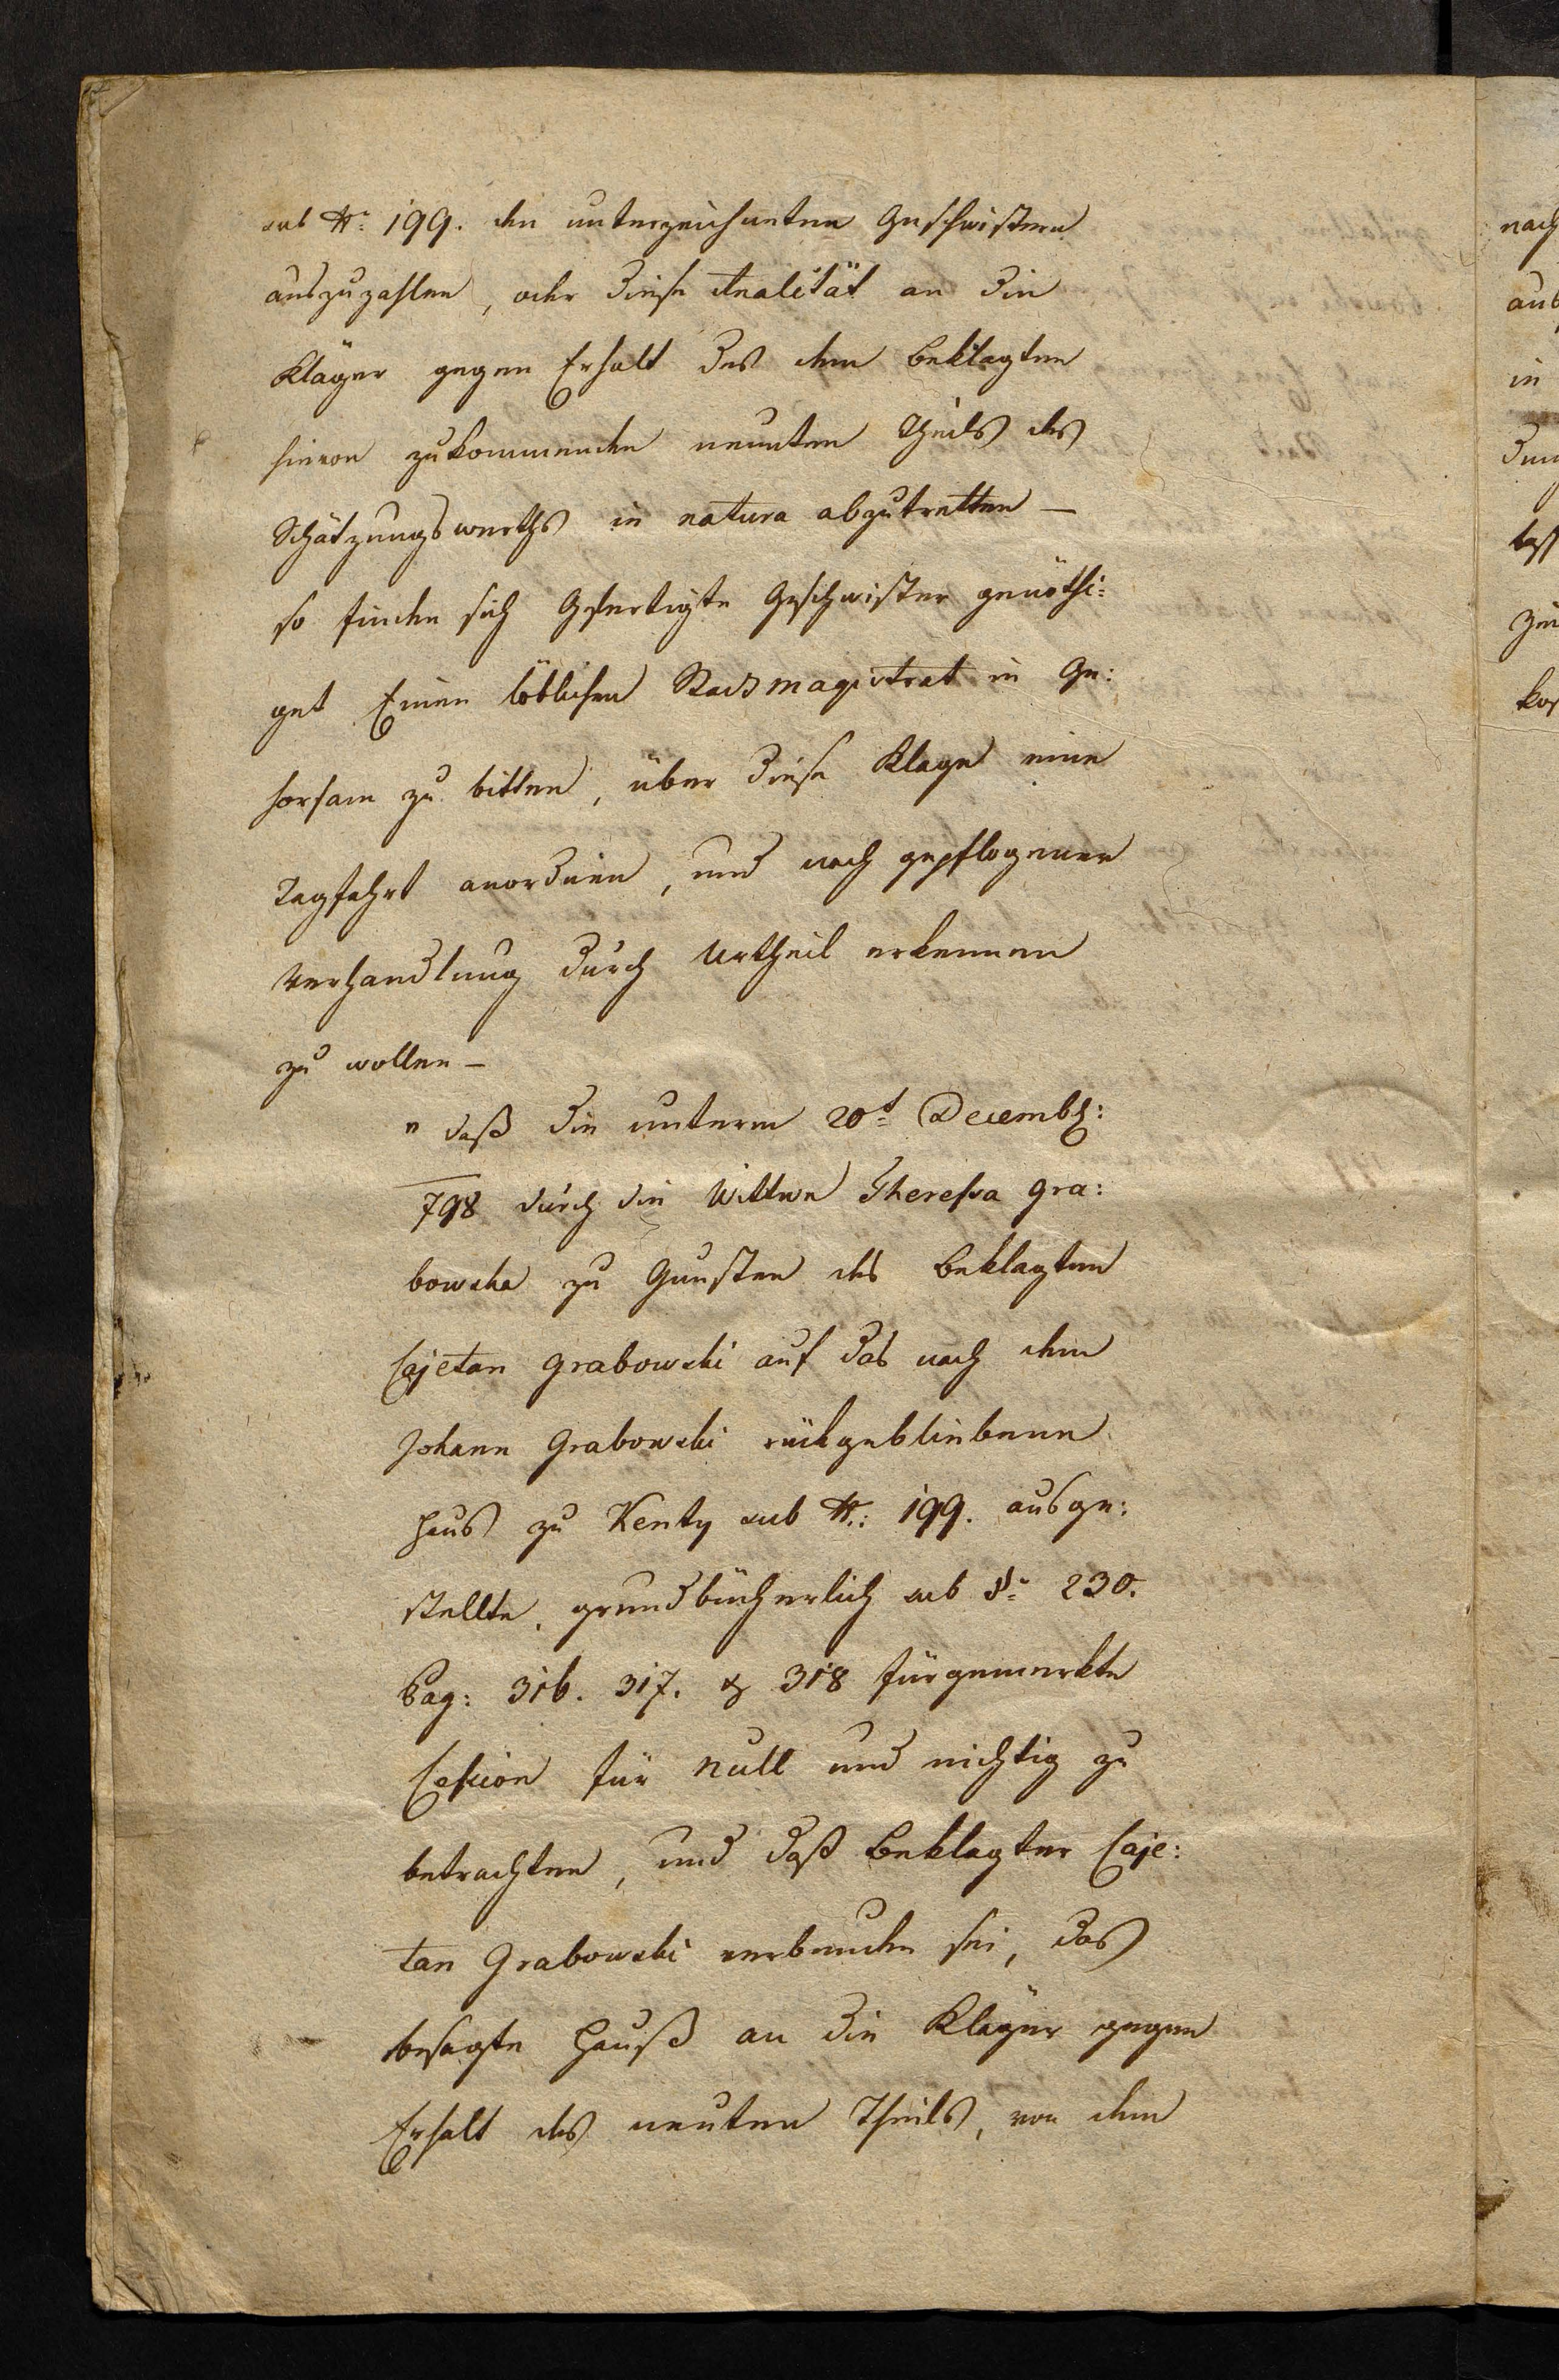 sub Nr: 199. den unterzeichneten Geschwistern
auszuzahlen, oder diese Realität an die
Kläger gegen Erhalt des dem Beklagten
hievon zukommenden neunten Theils des
Schätzungswerths in natura abzutretten —
so finden sich Gefertigte Geschwister genöthi:
get Einen löblichen Stadtmagistrat in Ge:
horsam zu bitten, über diese Klage eine
Tagfahrt anordnen, und nach gepflogener
Verhandlung durch Urtheil erkennen
zu wollen —
" daß die unterm 20t Decembr:
798 durch die Wittwe Theresia Gra:
bowska zu Gunsten des Beklagten
Cajetan Grabowski auf das nach dem
Johann Grabowski rückgebliebene
Haus zu Kenty sub Nr: 199. ausge:
stellte, grundbücherlich sub Nr 230.
Pag: 316. 317. & 318 fürgemerkte
Cession für null und nichtig zu
betrachten, und daß Beklagter Caje:
tan Grabowski verbunden sei, das
besagte Hauß an die Kläger gegen
Erhalt des neunten Theils, von dem
nach
aus
in